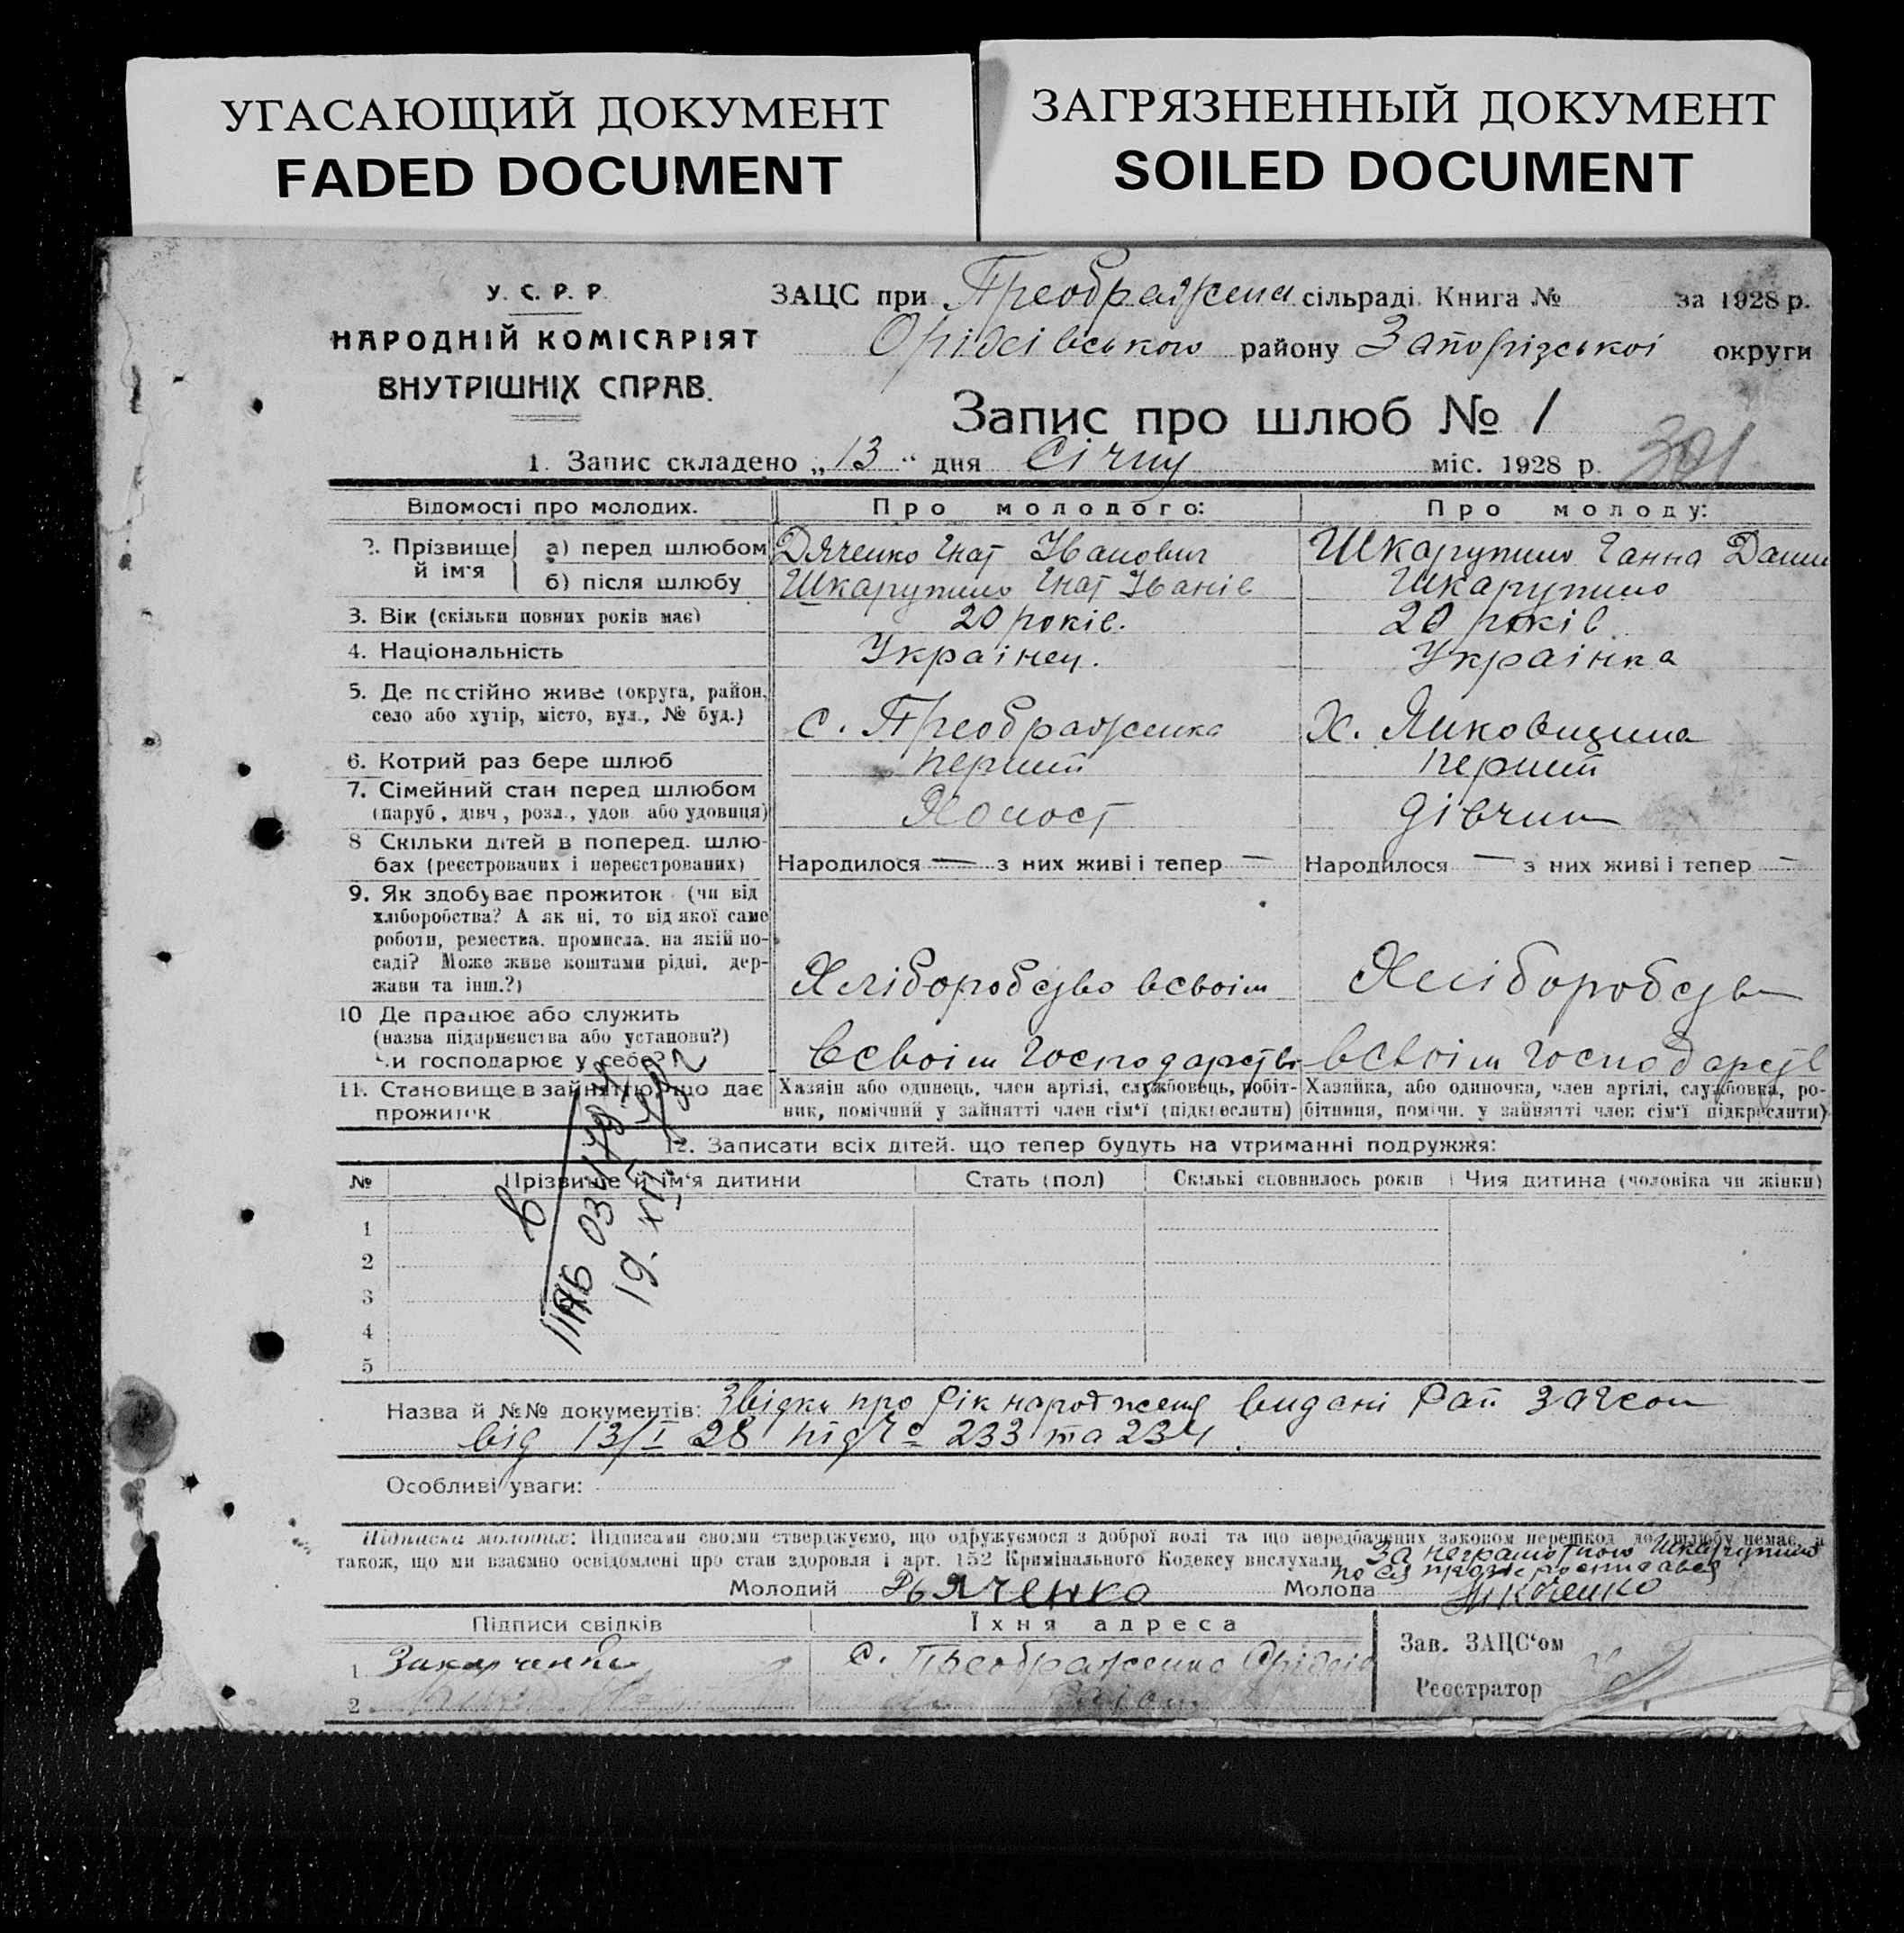 УГАСАЮЩИЙ ДОКУМЕНТ
FADED DOCUMENT
ЗАГРЯЗНЕННЫЙ ДОКУМЕНТ
SOILED DOCUMENT
У. С. Р. Р.
НАРОДНІЙ КОМІСАРІЯТ
ВНУТРІШНІХ СПРАВ.
ЗАЦС при Преображен сільраді. Книга № за 1928 р.
Оріхівського району Запорізської округи
Запис про шлюб № 1
301
1. Запис складено „13“ дня Січня міс. 1928 р.
Відомості про молодих. Про молодого: Про молоду:
2. Прізвище й ім'я а) перед шлюбом Дяченко Гнат Іванович Шкарупило Ганна Дани
б) після шлюбу Шкарупило Гнат Іванів Шкарупило
3. Вік (скільки повних років має) 20 років. 20 років
4. Національність Українец. Українка
5. Де постійно живе (округа, район, село або хутір, місто, вул., № буд.) с. Преображенка Х. Яиковщина
6. Котрий раз бере шлюб перший перший
7. Сімейний стан перед шлюбом (паруб., дівч., розл., удов. або удовиця) Холост дівчина
8 Скільки дітей в поперед. шлюбах (реєстрованих і нереєстрованих) Народилося — з них живі і тепер — Народилося — з них живі і тепер —
9. Як здобуває прожиток (чи від
хліборобства? А як ні, то від якої саме
роботи, ремества, промисла, на якій по-
саді? Може живе коштами рідні, дер-
жави та інш.?) Хліборобство всвоім Хліборобств
10 Де працює або служить
(назва підприємства або установи?)
Чи господарює у себе? всвоім господарств всвоім господарств
11. Становище в зайняттю, що дає прожиток
Хазяїн або одинець, член артілі, службовець, робіт-
ник, помічний у зайнятті член сім'ї (підкреслити)
Хазяйка, або одиночка, член артілі, службовка, ро-
бітниця, помічн. у зайнятті член сім'ї підкреслити)
12. Записати всіх дітей, що тепер будуть на утриманні подружжя:
№ Прізвище й ім'я дитини Стать (пол) Скількі сповнилось років Чия дитина (чоловіка чи жінки)
1
2
3
4
5
Назва й №№ документів: Звідки про рік народження видані Рай загсом
від 13/I 28 під № 233 та 234.
Особливі уваги:
Підписка молодих: Підписами своїми стверджуємо, що одружуємося з доброї волі та що передбачених законом перешкод до шлюбу немає, а
також, що ми взаємно освідомлені про стан здоровля і арт. 152 Кримінального Кодексу вислухали
За неграмотною Шкарупило
по її прозбі росписався
Молодий Дьяченко Молода
Підписи свідків Їхня адреса
1 с. Преображенка Оріхів
2
Зав. ЗАЦС'ом
Реєстратор